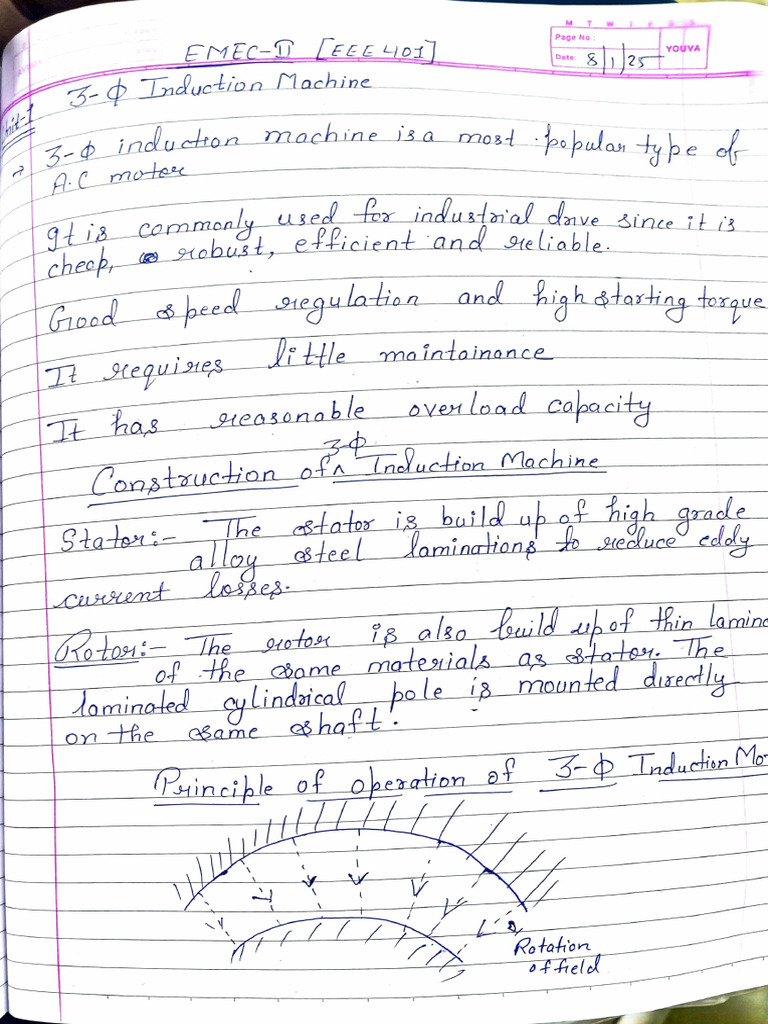 M T W T F S S
Page No.:
YOUVA
Date: 8/1/25
EMEC-II [EEE 401]
3-Φ Induction Machine
Unit-1
→ 3-Φ induction machine is a most popular type of
A.C motor
It is commonly used for industrial drive since it is
cheap, robust, efficient and reliable.
Good speed regulation and high starting torque
It requires little maintainance
It has reasonable overload capacity
Construction of 3-Φ Induction Machine
Stator:- The stator is build up of high grade
alloy steel laminations to reduce eddy
current losses.
Rotor:- The rotor is also build up of thin lamina
of the same materials as stator. The
laminated cylindrical pole is mounted directly
on the same shaft.
Principle of operation of 3-Φ Induction Mo
Rotation
of field